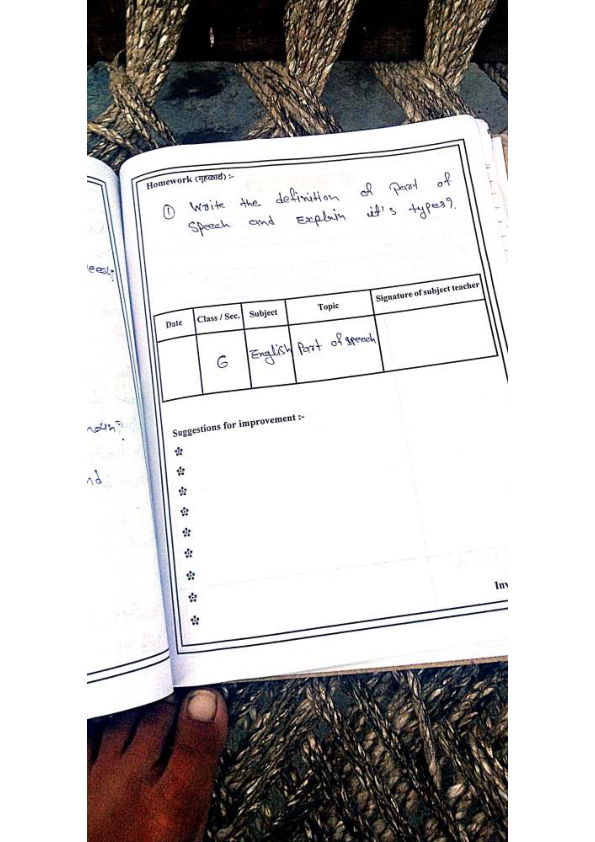 Homework (गृहकार्य) :-
① Write the definition of Part of
Speech and Explain it's types?
Date Class / Sec. Subject Topic Signature of subject teacher
6 English Part of speech
Suggestions for improvement :-